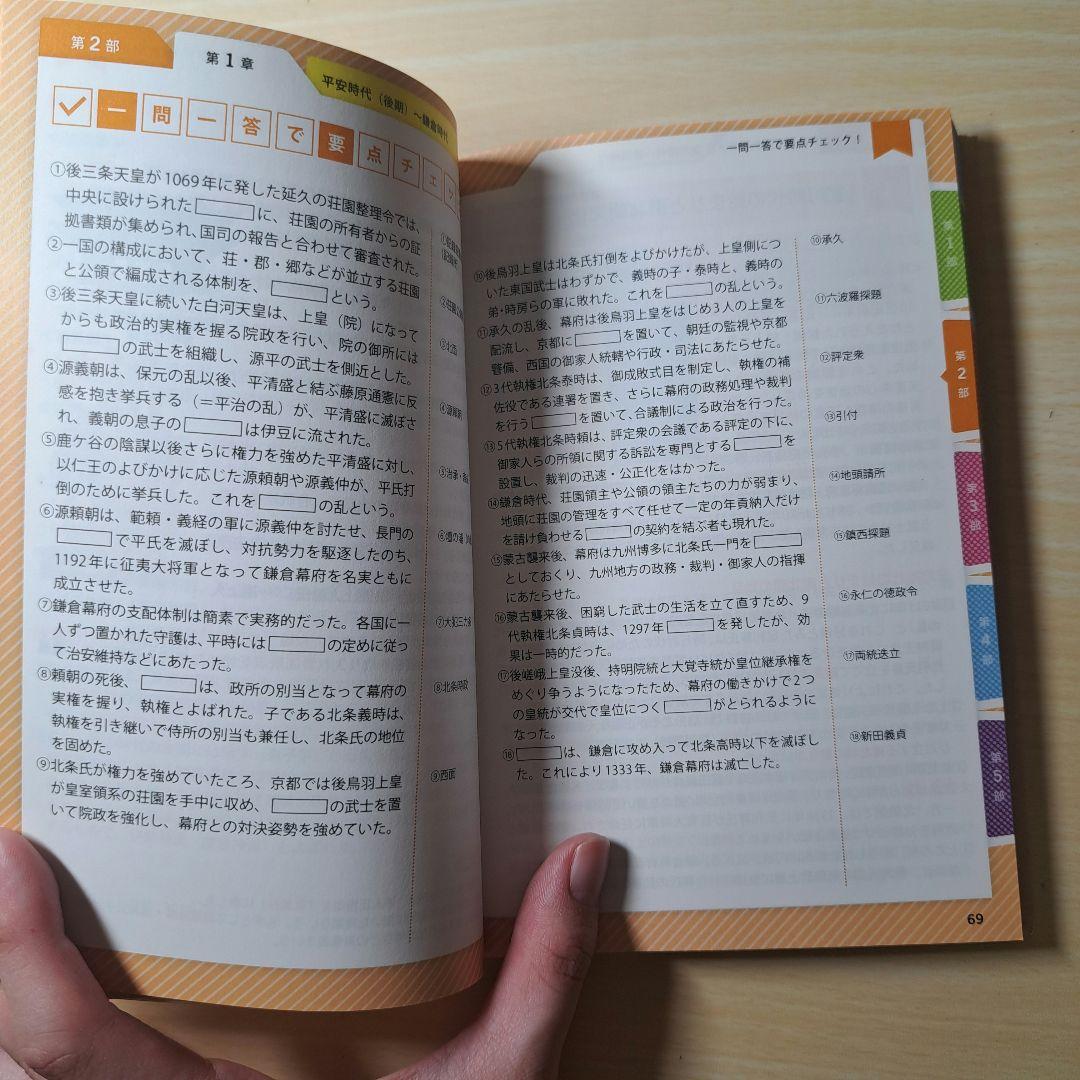 第2部
第1章
平安時代（後期）～鎌倉時代
一問一答で要点チェッ
①後三条天皇が1069年に発した延久の荘園整理令では、
中央に設けられた　　　に、荘園の所有者からの証
拠書類が集められ、国司の報告と合わせて審査された。
②一国の構成において、荘・郡・郷などが並立する荘園
と公領で編成される体制を、　　　という。
③後三条天皇に続いた白河天皇は、上皇（院）になって
からも政治的実権を握る院政を行い、院の御所には
　　　の武士を組織し、源平の武士を側近とした。
④源義朝は、保元の乱以後、平清盛と結ぶ藤原通憲に反
感を抱き挙兵する（＝平治の乱）が、平清盛に滅ぼさ
れ、義朝の息子の　　　は伊豆に流された。
⑤鹿ケ谷の陰謀以後さらに権力を強めた平清盛に対し、
以仁王のよびかけに応じた源頼朝や源義仲が、平氏打
倒のために挙兵した。これを　　　の乱という。
⑥源頼朝は、範頼・義経の軍に源義仲を討たせ、長門の
　　　で平氏を滅ぼし、対抗勢力を駆逐したのち、
1192年に征夷大将軍となって鎌倉幕府を名実ともに
成立させた。
⑦鎌倉幕府の支配体制は簡素で実務的だった。各国に一
人ずつ置かれた守護は、平時には　　　の定めに従っ
て治安維持などにあたった。
⑧頼朝の死後、　　　は、政所の別当となって幕府の
実権を握り、執権とよばれた。子である北条義時は、
執権を引き継いで侍所の別当も兼任し、北条氏の地位
を固めた。
⑨北条氏が権力を強めていたころ、京都では後鳥羽上皇
が皇室領系の荘園を手中に収め、　　　の武士を置
いて院政を強化し、幕府との対決姿勢を強めていた。
③北面
④源頼朝
⑤治承・
⑥壇の浦
⑦大犯三カ条
⑧北条時政
⑨西面
一問一答で要点チェック！
⑩後鳥羽上皇は北条氏打倒をよびかけたが、上皇側につ
いた東国武士はわずかで、義時の子・泰時と、義時の
弟・時房らの軍に敗れた。これを　　　の乱という。
⑪承久の乱後、幕府は後鳥羽上皇をはじめ3人の上皇を
配流し、京都に　　　を置いて、朝廷の監視や京都
警備、西国の御家人統轄や行政・司法にあたらせた。
⑫3代執権北条泰時は、御成敗式目を制定し、執権の補
佐役である連署を置き、さらに幕府の政務処理や裁判
を行う　　　を置いて、合議制による政治を行った。
⑬5代執権北条時頼は、評定衆の会議である評定の下に、
御家人らの所領に関する訴訟を専門とする　　　を
設置し、裁判の迅速・公正化をはかった。
⑭鎌倉時代、荘園領主や公領の領主たちの力が弱まり、
地頭に荘園の管理をすべて任せて一定の年貢納入だけ
を請け負わせる　　　の契約を結ぶ者も現れた。
⑮蒙古襲来後、幕府は九州博多に北条氏一門を　　　
としておくり、九州地方の政務・裁判・御家人の指揮
にあたらせた。
⑯蒙古襲来後、困窮した武士の生活を立て直すため、9
代執権北条貞時は、1297年　　　を発したが、効
果は一時的だった。
⑰後嵯峨上皇没後、持明院統と大覚寺統が皇位継承権を
めぐり争うようになったため、幕府の働きかけで2つ
の皇統が交代で皇位につく　　　がとられるように
なった。
⑱　　　は、鎌倉に攻め入って北条高時以下を滅ぼし
た。これにより1333年、鎌倉幕府は滅亡した。
⑩承久
⑪六波羅探題
⑫評定衆
⑬引付
⑭地頭請所
⑮鎮西探題
⑯永仁の徳政令
⑰両統迭立
⑱新田義貞
第1部
第2部
第3部
第4部
第5部
69